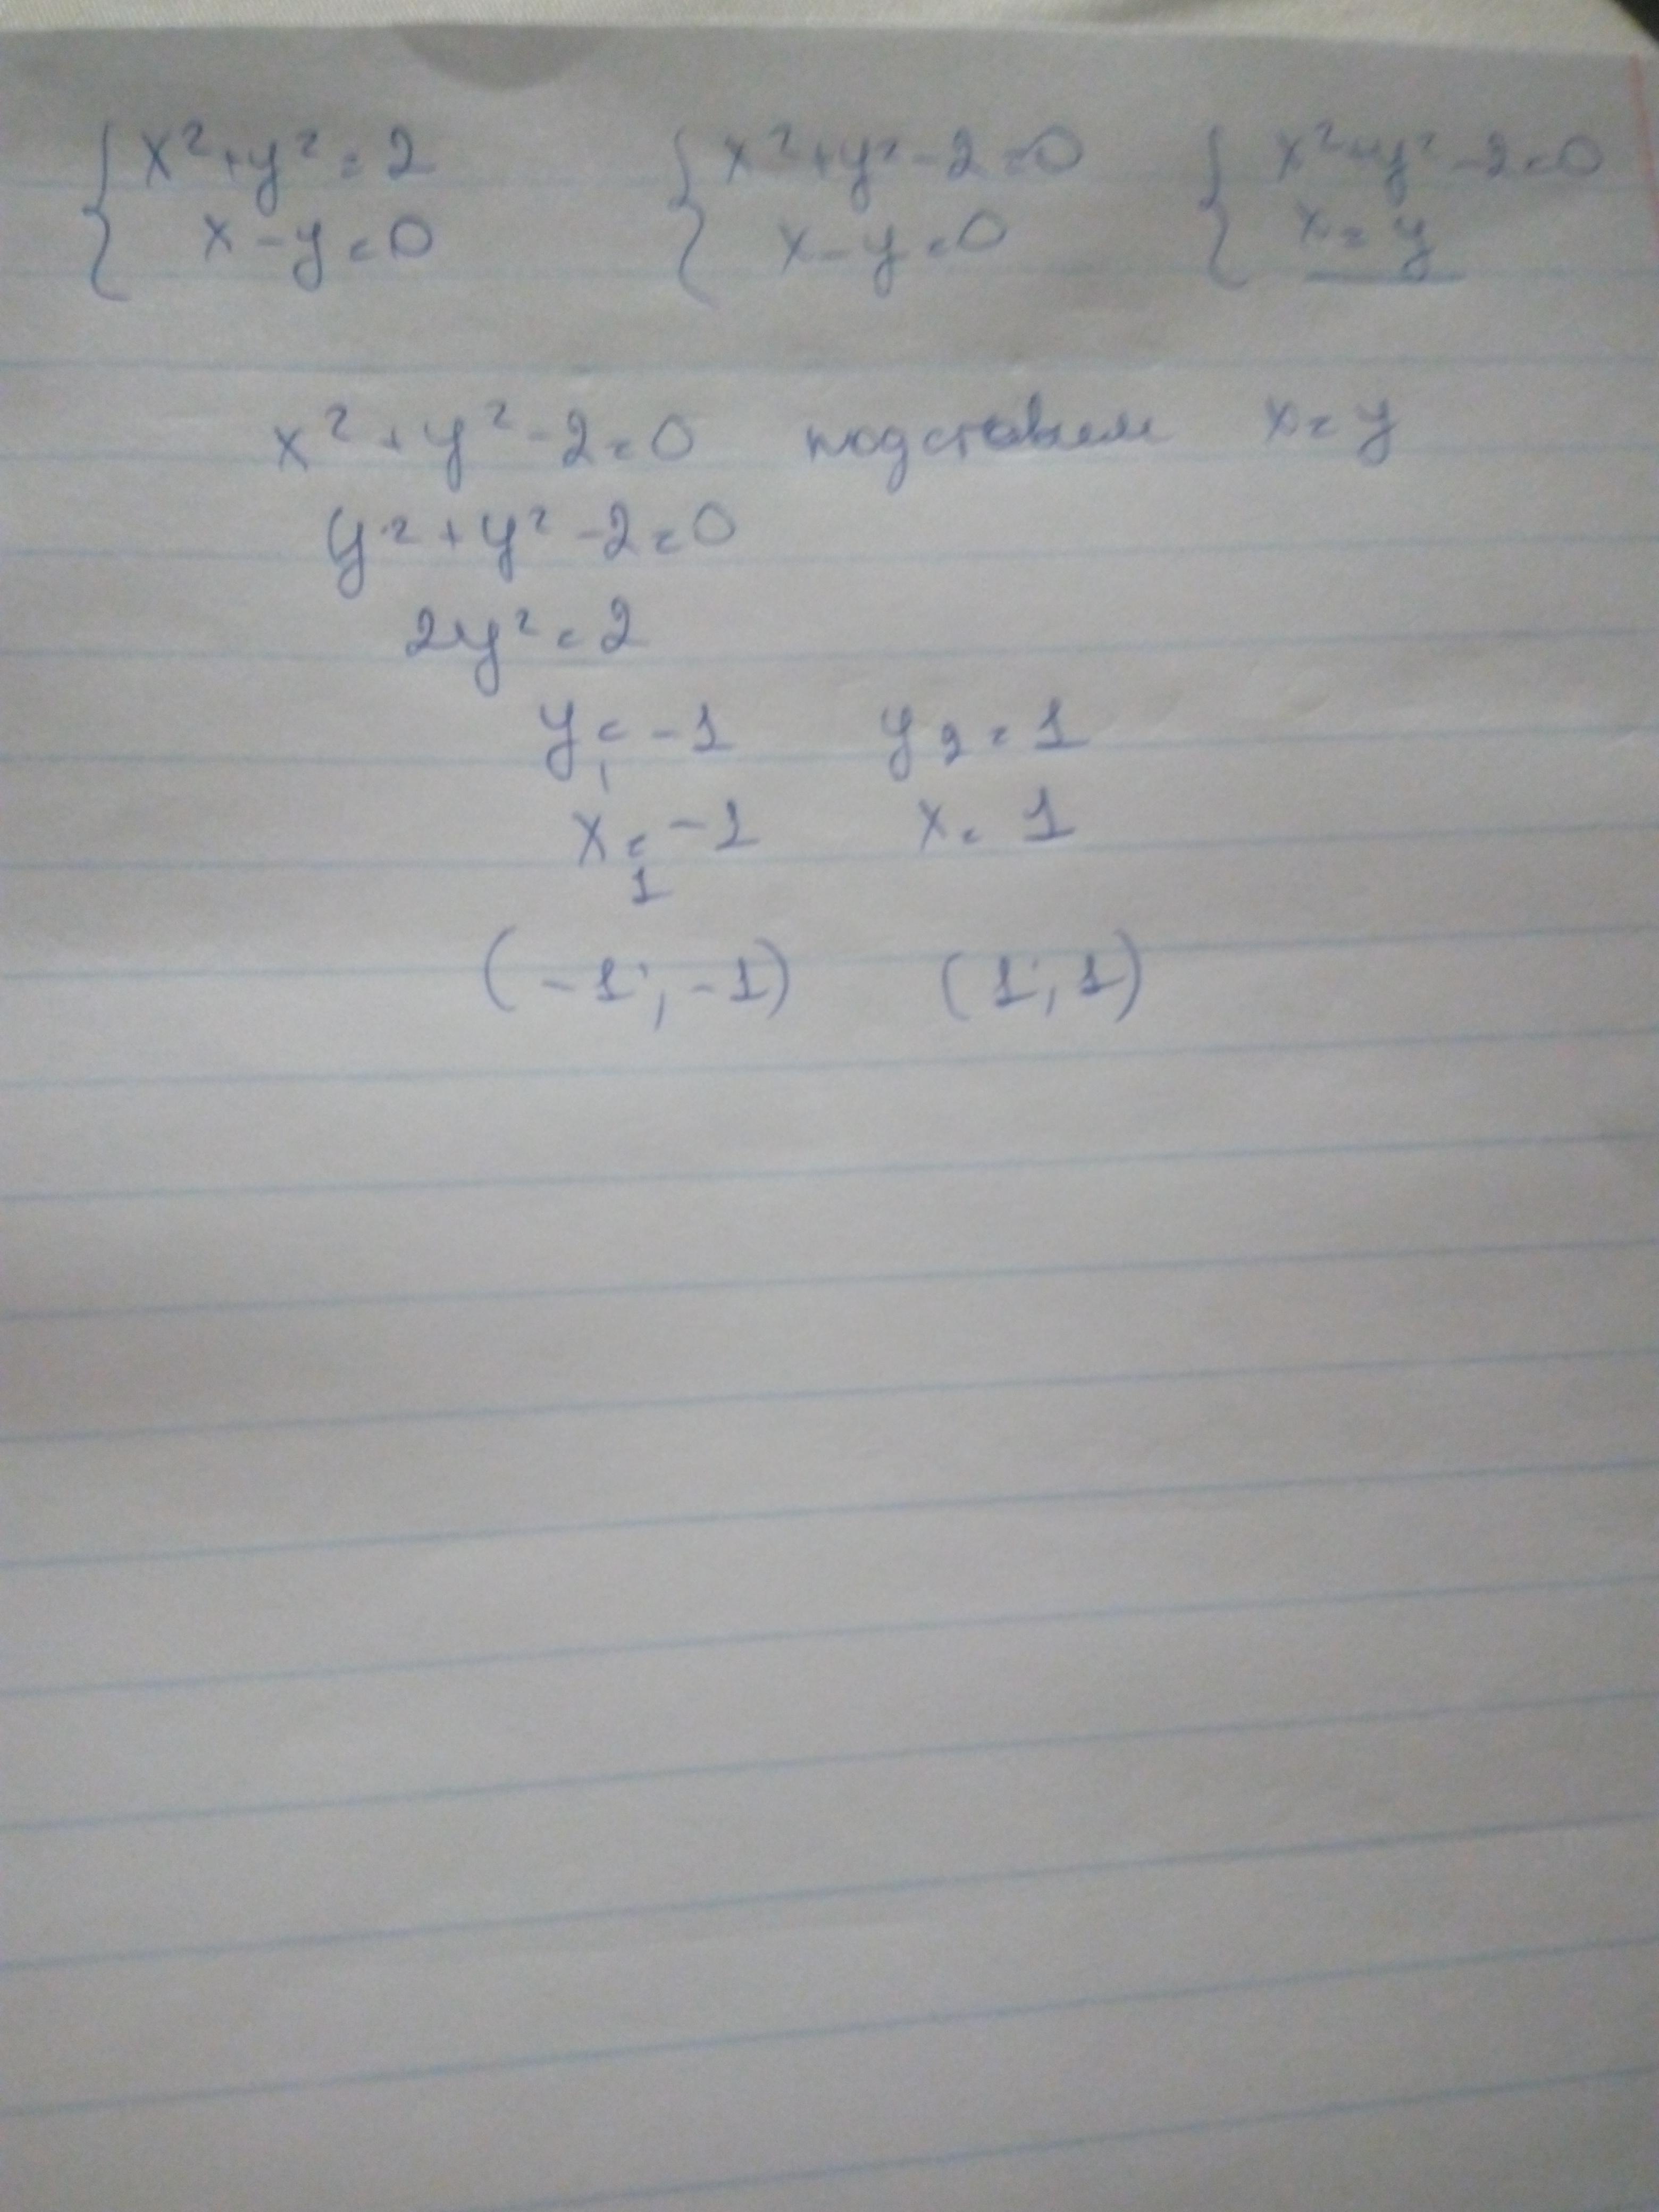 { x² + y² = 2 { x² + y² - 2 = 0 { x² + y² - 2 = 0
x - y = 0 x - y = 0 x = y
x² + y² - 2 = 0 подставляем x = y
y² + y² - 2 = 0
2y² = 2
y₁ = -1 y₂ = 1
x₁ = -1 x = 1
(-1; -1) (1; 1)